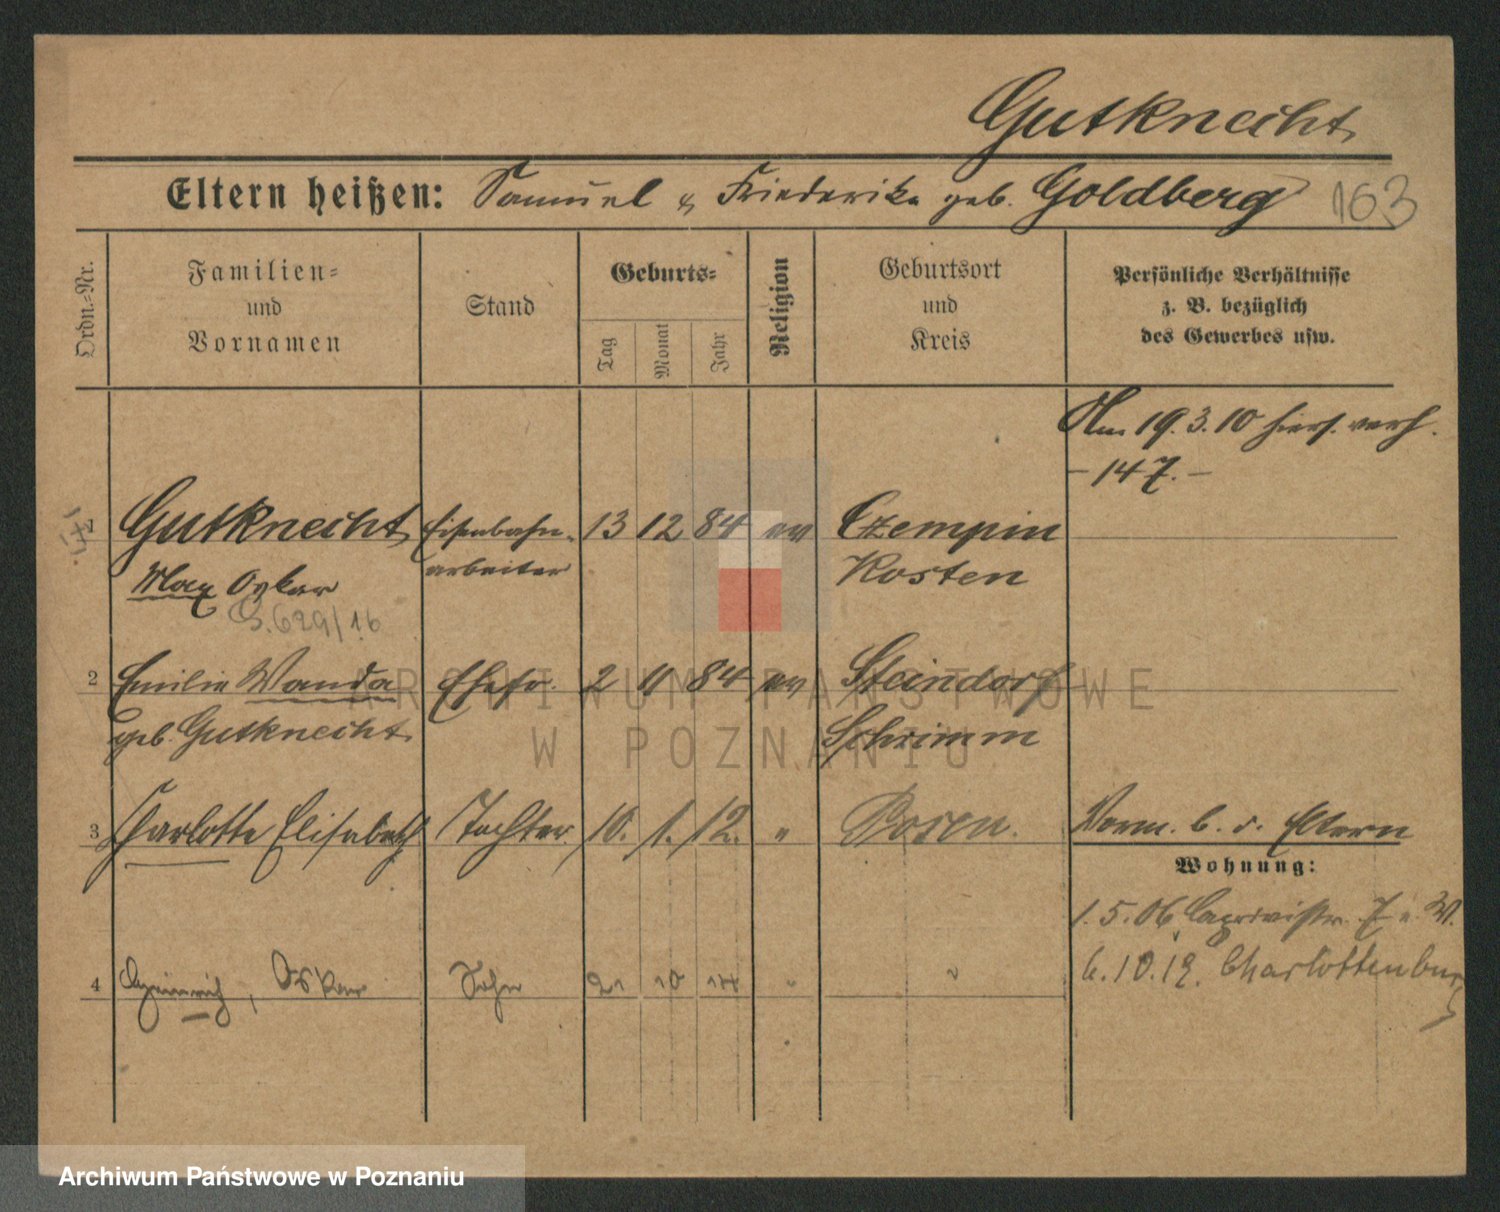 Gutknecht
Eltern heißen: Samuel & Friederike geb. Goldberg 163
Ordn.-Nr.
Familien-
und
Vornamen
Stand
Geburts-
Tag
Monat
Jahr
Religion
Geburtsort
und
Kreis
Persönliche Verhältnisse
z. B. bezüglich
des Gewerbes usw.
Am 19.3.10 hiers. verh.
– 147. –
1 Gutknecht Eisenbahn- 13 12 84 ev Czempin
Max Oskar arbeiter Kosten
629/16
2 Emilie Wanda Ehefr. 2 11 84 ev Steindorf
geb. Gutknecht Schrimm
3 Charlotte Elisabeth Tochter 10. 1. 12. " Posen. Vorm. b. d. Eltern
Wohnung:
1.5.06 Caprivistr. 7
4 Heinrich, Oskar Sohn 21 10 14 " " 6.10.19. Charlottenburg
ARCHIWUM PAŃSTWOWE
W POZNANIU
Archiwum Państwowe w Poznaniu